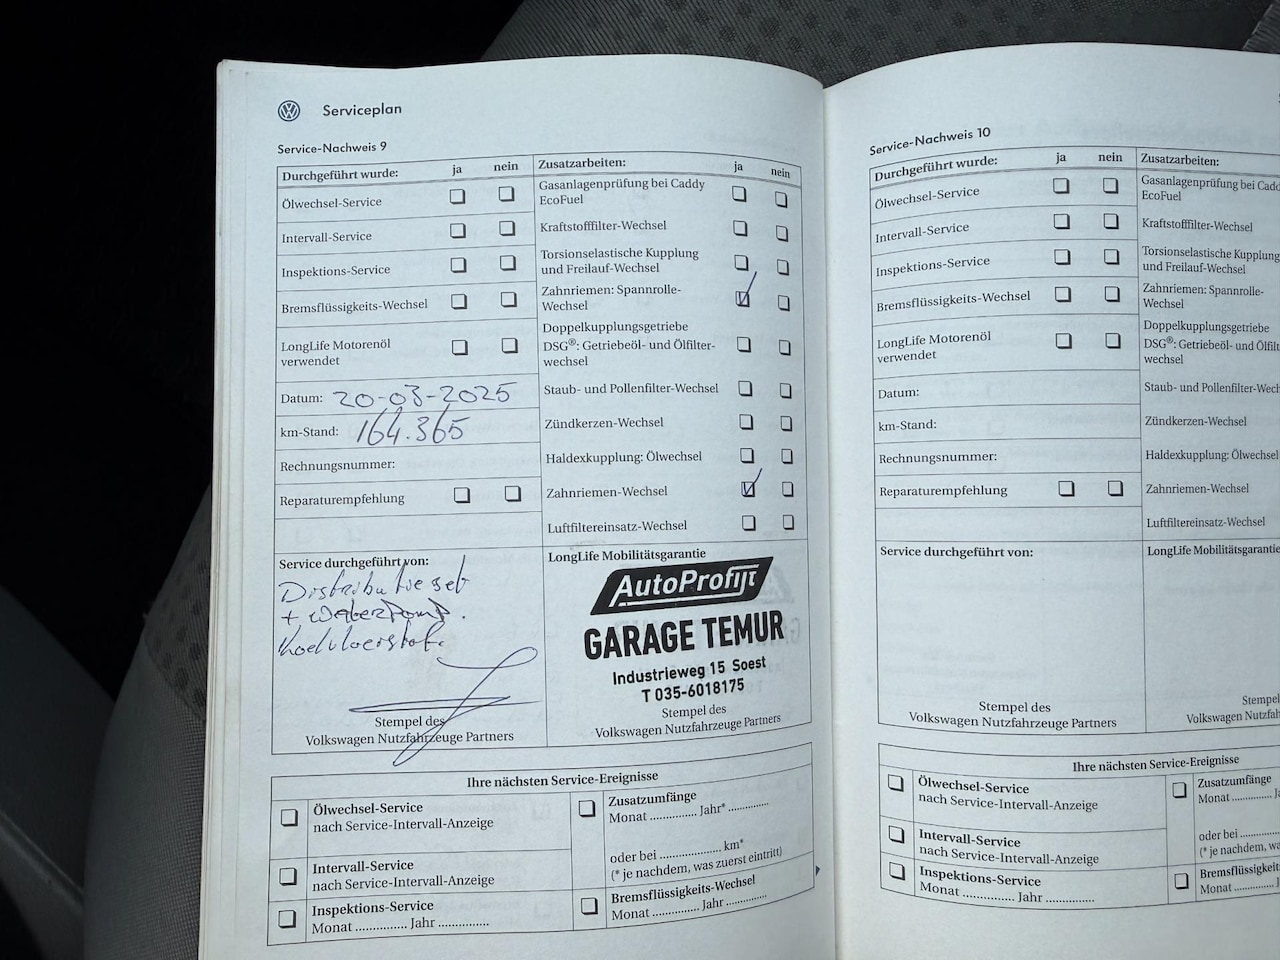 Serviceplan
Service-Nachweis 9
Durchgeführt wurde: ja nein
Ölwechsel-Service
Intervall-Service
Inspektions-Service
Bremsflüssigkeits-Wechsel
LongLife Motorenöl
verwendet
Datum: 20-03-2025
km-Stand: 164.365
Rechnungsnummer:
Reparaturempfehlung
Zusatzarbeiten: ja nein
Gasanlagenprüfung bei Caddy
EcoFuel
Kraftstofffilter-Wechsel
Torsionselastische Kupplung
und Freilauf-Wechsel
Zahnriemen: Spannrolle-
Wechsel
Doppelkupplungsgetriebe
DSG®: Getriebeöl- und Ölfilter-
wechsel
Staub- und Pollenfilter-Wechsel
Zündkerzen-Wechsel
Haldexkupplung: Ölwechsel
Zahnriemen-Wechsel
Luftfiltereinsatz-Wechsel
Service durchgeführt von:
Distributieset
+ waterpomp.
Koelvloeistof.
Stempel des
Volkswagen Nutzfahrzeuge Partners
LongLife Mobilitätsgarantie
AutoProfijt
GARAGE TEMUR
Industrieweg 15 Soest
T 035-6018175
Stempel des
Volkswagen Nutzfahrzeuge Partners
Ihre nächsten Service-Ereignisse
Ölwechsel-Service
nach Service-Intervall-Anzeige
Intervall-Service
nach Service-Intervall-Anzeige
Inspektions-Service
Monat ............... Jahr ...............
Zusatzumfänge
Monat .............. Jahr* ............
oder bei .................. km*
(* je nachdem, was zuerst eintritt)
Bremsflüssigkeits-Wechsel
Monat .............. Jahr ............
Service-Nachweis 10
Durchgeführt wurde: ja nein
Ölwechsel-Service
Intervall-Service
Inspektions-Service
Bremsflüssigkeits-Wechsel
LongLife Motorenöl
verwendet
Datum:
km-Stand:
Rechnungsnummer:
Reparaturempfehlung
Zusatzarbeiten:
Gasanlagenprüfung bei Cadd
EcoFuel
Kraftstofffilter-Wechsel
Torsionselastische Kupplung
und Freilauf-Wechsel
Zahnriemen: Spannrolle-
Wechsel
Doppelkupplungsgetriebe
DSG®: Getriebeöl- und Ölfilt
wechsel
Staub- und Pollenfilter-Wechs
Zündkerzen-Wechsel
Haldexkupplung: Ölwechsel
Zahnriemen-Wechsel
Luftfiltereinsatz-Wechsel
Service durchgeführt von:
Stempel des
Volkswagen Nutzfahrzeuge Partners
LongLife Mobilitätsgarantie
Stempel
Volkswagen Nutzfah
Ihre nächsten Service-Ereignisse
Ölwechsel-Service
nach Service-Intervall-Anzeige
Intervall-Service
nach Service-Intervall-Anzeige
Inspektions-Service
Monat ............... Jahr ...............
Zusatzumfänge
Monat .............. Ja
oder bei ............
(* je nachdem, wa
Bremsflüssigkeits
Monat .............. J